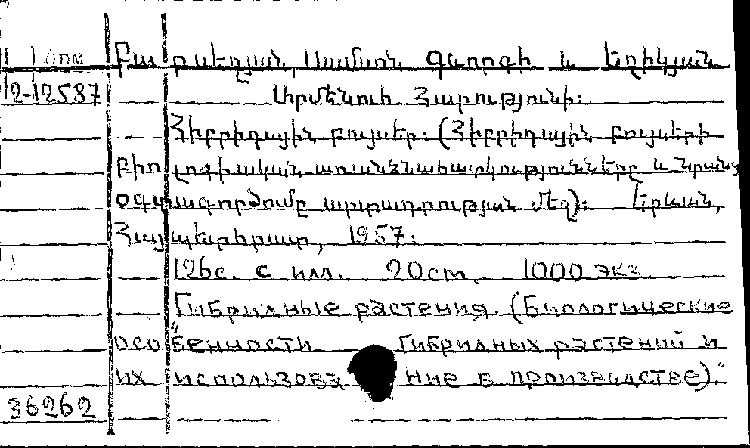 Բարսեղյան, Սամսոն Գևորգի և Եղիկյան
2-12587 Արմենուհի Հարությունի։
Հիբրիդային բույսեր։ (Հիբրիդային բույսերի
բիոլոգիական առանձնահատկությունները և նրանց
օգտագործումը արտադրության մեջ)։ Երևան,
Հայպետհրատ, 1957։
126с. с илл. 20см. 1000 экз.
"Гибридные растения. (Биологические
особенности гибридных растений и
их использование в производстве)."
36262